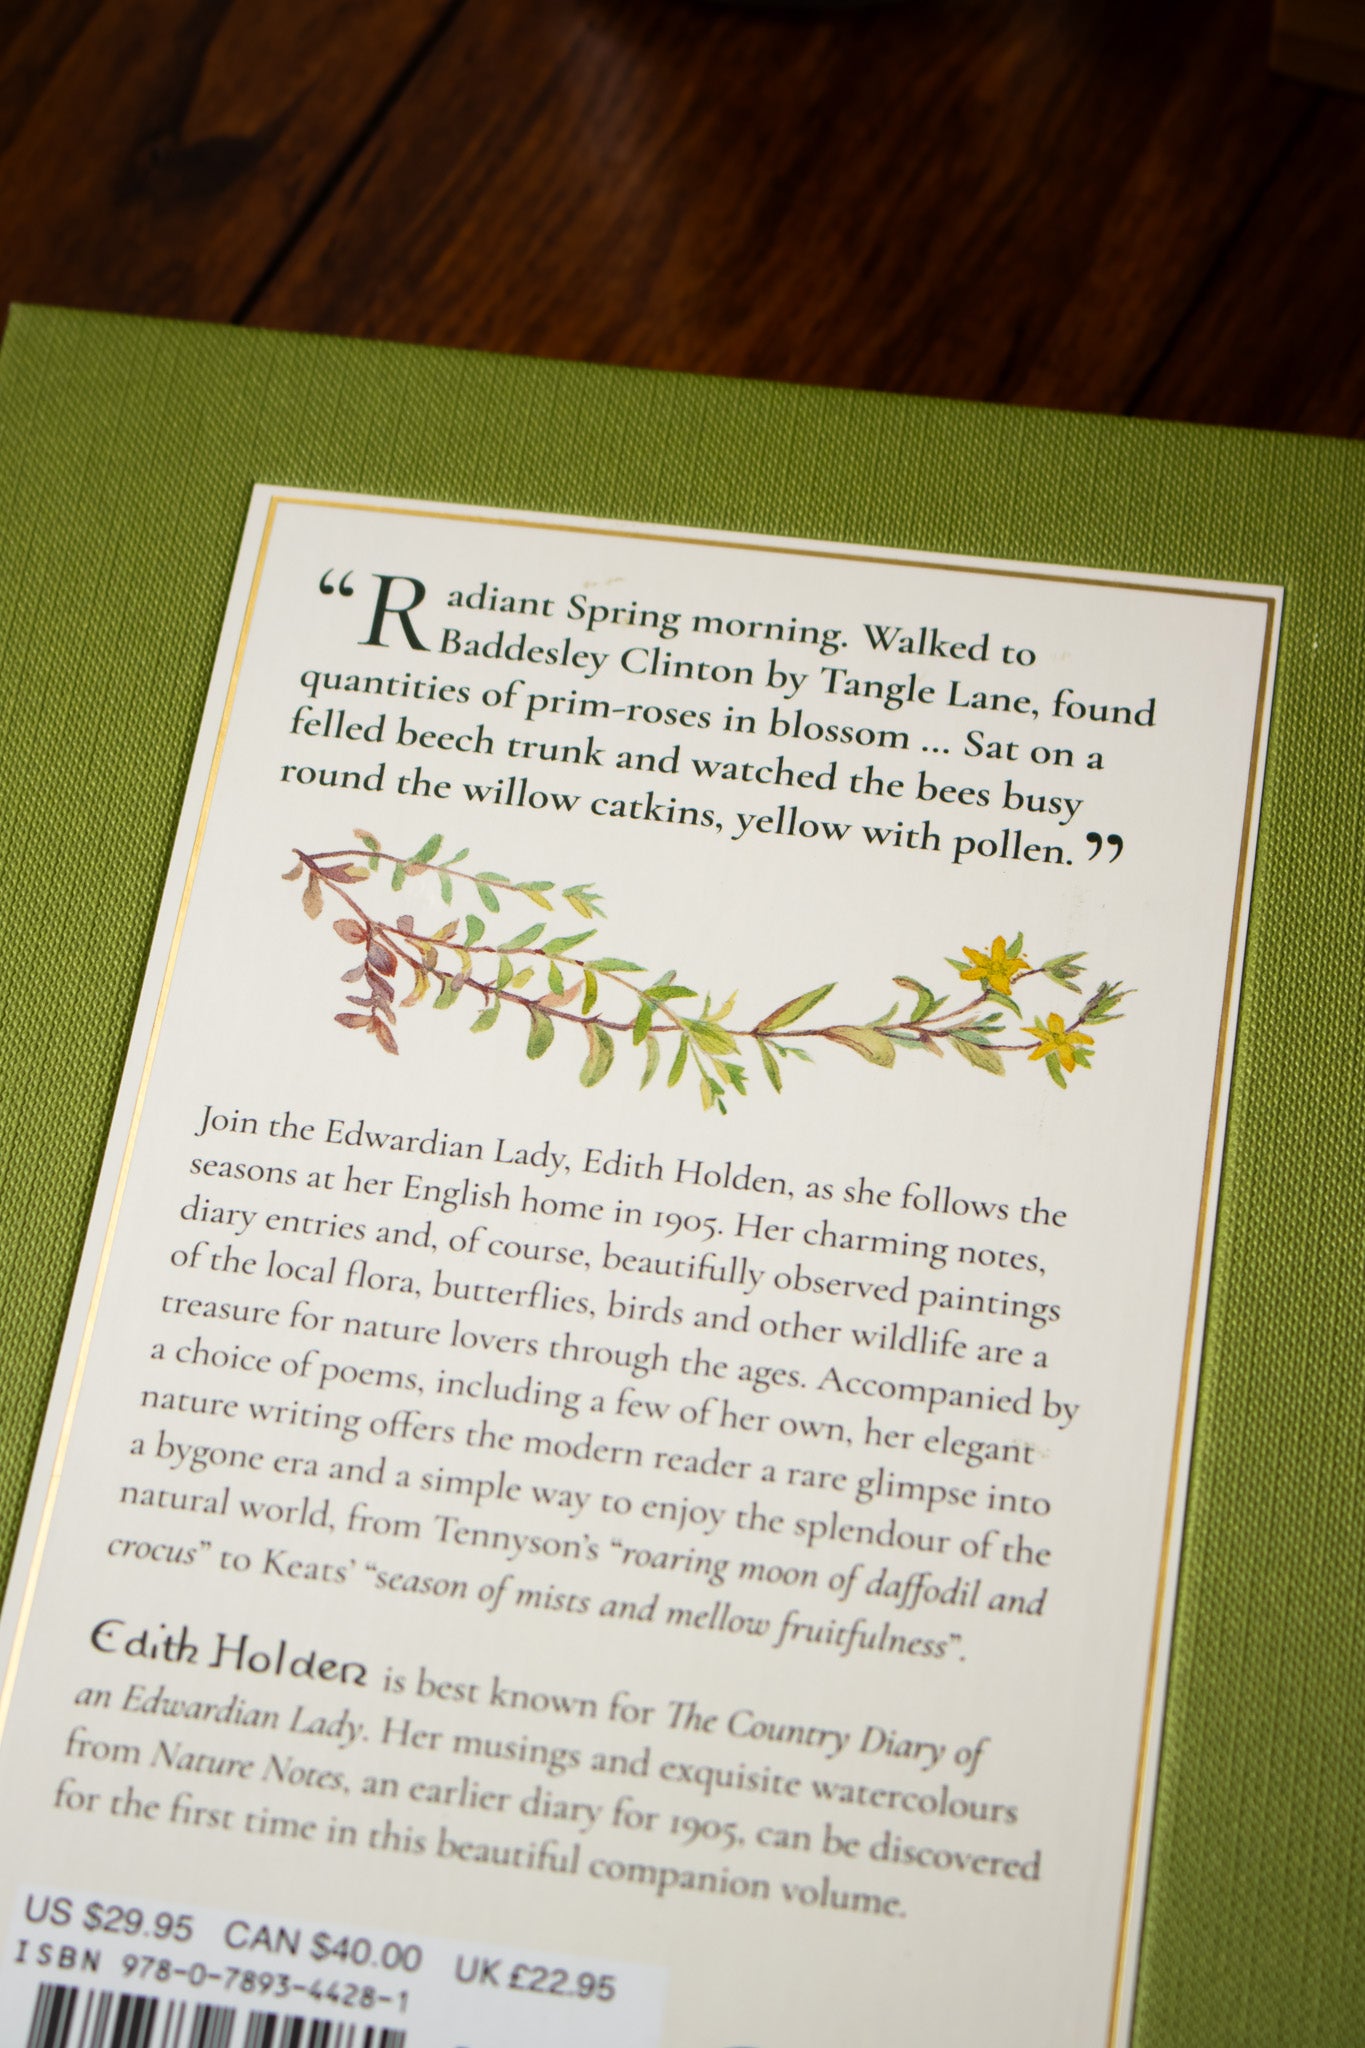 “Radiant Spring morning. Walked to
Baddesley Clinton by Tangle Lane, found
quantities of prim-roses in blossom ... Sat on a
felled beech trunk and watched the bees busy
round the willow catkins, yellow with pollen.”
Join the Edwardian Lady, Edith Holden, as she follows the
seasons at her English home in 1905. Her charming notes,
diary entries and, of course, beautifully observed paintings
of the local flora, butterflies, birds and other wildlife are a
treasure for nature lovers through the ages. Accompanied by
a choice of poems, including a few of her own, her elegant
nature writing offers the modern reader a rare glimpse into
a bygone era and a simple way to enjoy the splendour of the
natural world, from Tennyson’s “roaring moon of daffodil and
crocus” to Keats’ “season of mists and mellow fruitfulness”.
Edith Holden is best known for The Country Diary of
an Edwardian Lady. Her musings and exquisite watercolours
from Nature Notes, an earlier diary for 1905, can be discovered
for the first time in this beautiful companion volume.
US $29.95 CAN $40.00 UK £22.95
ISBN 978-0-7893-4428-1